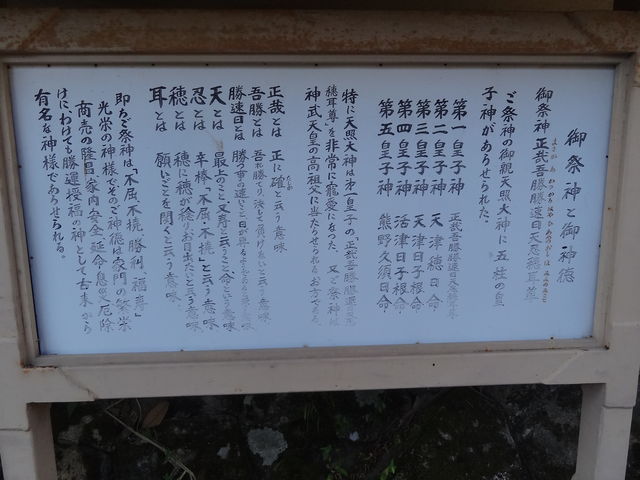 御祭神と御神徳
御祭神 正哉吾勝勝速日天忍穂耳尊
ご祭神の御親天照大神に五柱の皇
子神があらせられた。
第一皇子神 正哉吾勝勝速日天忍穂耳尊
第二皇子神 天津穂日命
第三皇子神 天津日子根命
第四皇子神 活津日子根命
第五皇子神 熊野久須日命
特に天照大神は第一皇子の正哉吾勝勝速日天忍
穂耳尊を非常に寵愛になった 又ご祭神は
神武天皇の高祖父に当たらせられるお方である
正哉とは 正に確と云う意味
吾勝とは 吾れ勝てり決して負けないと云う意味
勝速日とは 勝つ事の速いこと日が昇る
天とは 最上のこと又寿と云うこと命という意味
忍とは 辛棒「不屈不撓」と云う意味
穂とは 穂に穂が稔りお目出たいと云う意味
耳とは 願いごとを聞くと云う意味
即ちご祭神は「不屈不撓、勝利、福寿」
光栄の神様でそのご神徳は家門の繁栄
商売の隆昌家内安全延命息災厄除
けにわけても勝運授福の神として古来から
有名な神様であらせられる。